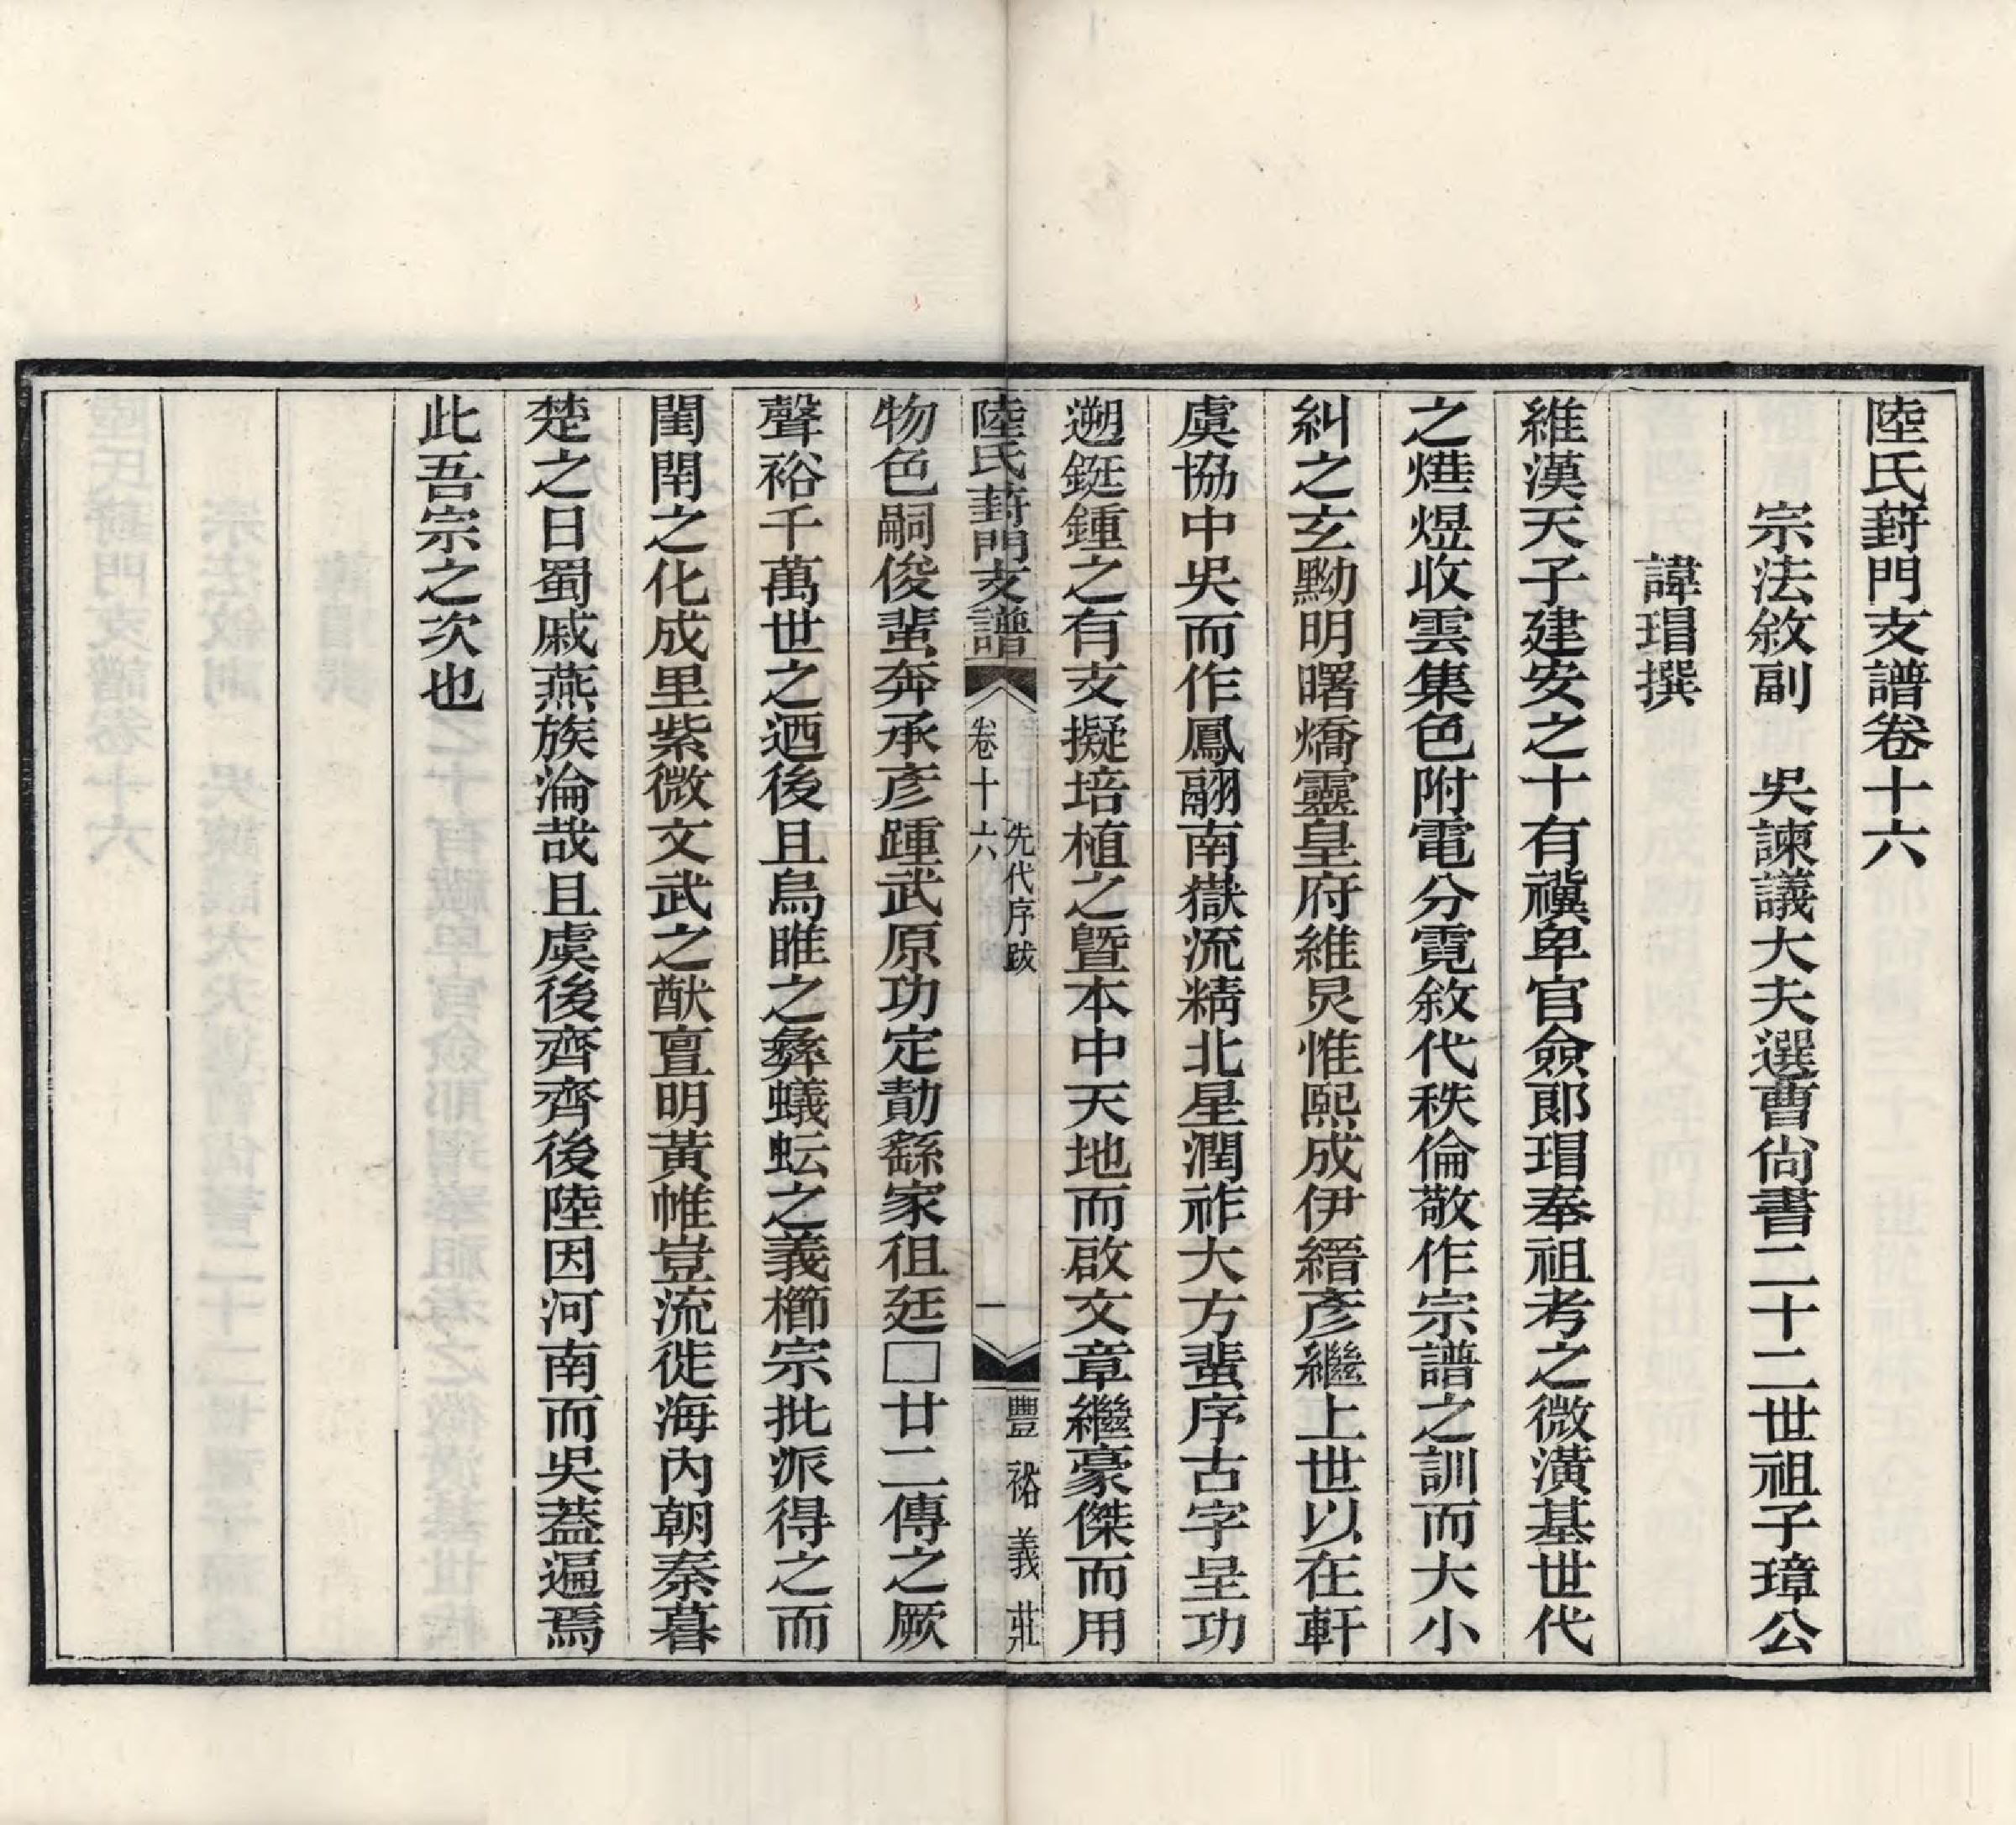 陸氏葑門支譜卷十六
宗法敘副　吳諫議大夫選曹尙書二十二世祖子璋公
諱瑁撰
維漢天子建安之十有禩卑官僉郞瑁奉祖考之微潢基世代
之爗煜收雲集色附電分霓敘代秩倫敬作宗譜之訓而大小
糾之玄黝明曙燆靈皇府維炅惟熙成伊縉彥繼上世以在軒
虞協中吳而作鳳翮南嶽流精北星潤祚大方蜚序古字呈功
遡鋌鍾之有支擬培植之曁本中天地而啟文章繼豪傑而用
陸氏葑門支譜
卷十六
先代序跋
一
豐裕義莊
物色嗣俊蜚奔承彥踵武原功定勣繇家徂廷□廿二傳之厥
聲裕千萬世之迺後且烏睢之彝蟻蚘之義櫛宗批派得之而
閨閈之化成里紫微文武之猷亶明黃帷豈流徙海內朝秦暮
楚之日蜀戚燕族淪哉且虞後齊齊後陸因河南而吳葢遍焉
此吾宗之次也